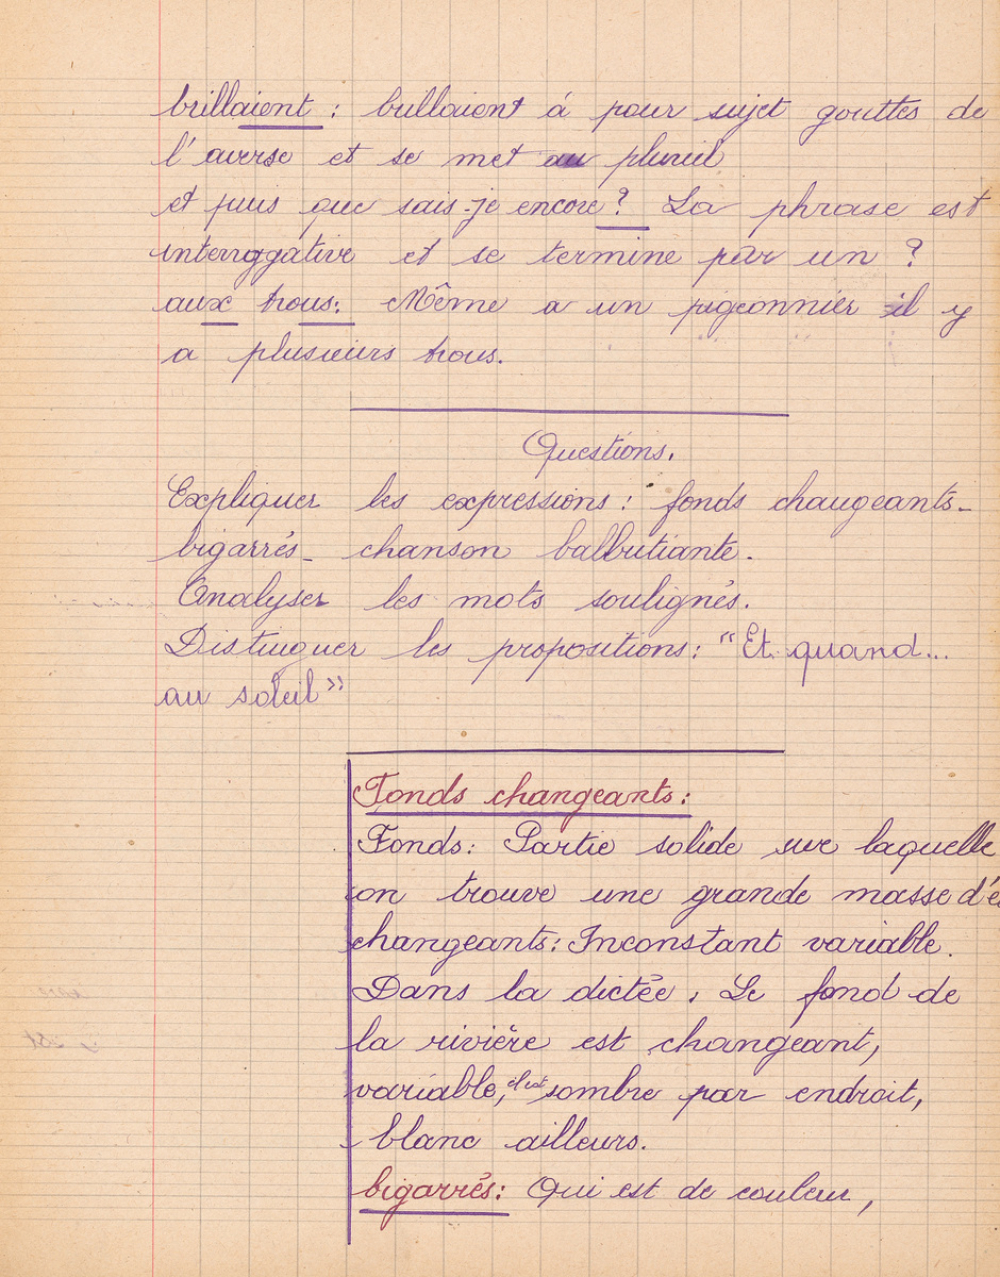 brillaient : brillaient á pour sujet gouttes de
l'averse et se met au pluriel
et puis que sais-je encore ? La phrase est
interrogative et se termine par un ?
aux trous : Même a un pigeonnier il y
a plusieurs trous.
Questions.
Expliquer les expressions : fonds changeants-
bigarrés - chanson balbutiante.
Analyser les mots soulignés.
Distinguer les propositions : "Et quand...
au soleil"
Fonds changeants :
Fonds : Partie solide sur laquelle
on trouve une grande masse d'e
changeants : Inconstant variable.
Dans la dictée, Le fond de
la rivière est changeant,
variable, il est sombre par endroit,
blanc ailleurs.
bigarrés : Qui est de couleur,